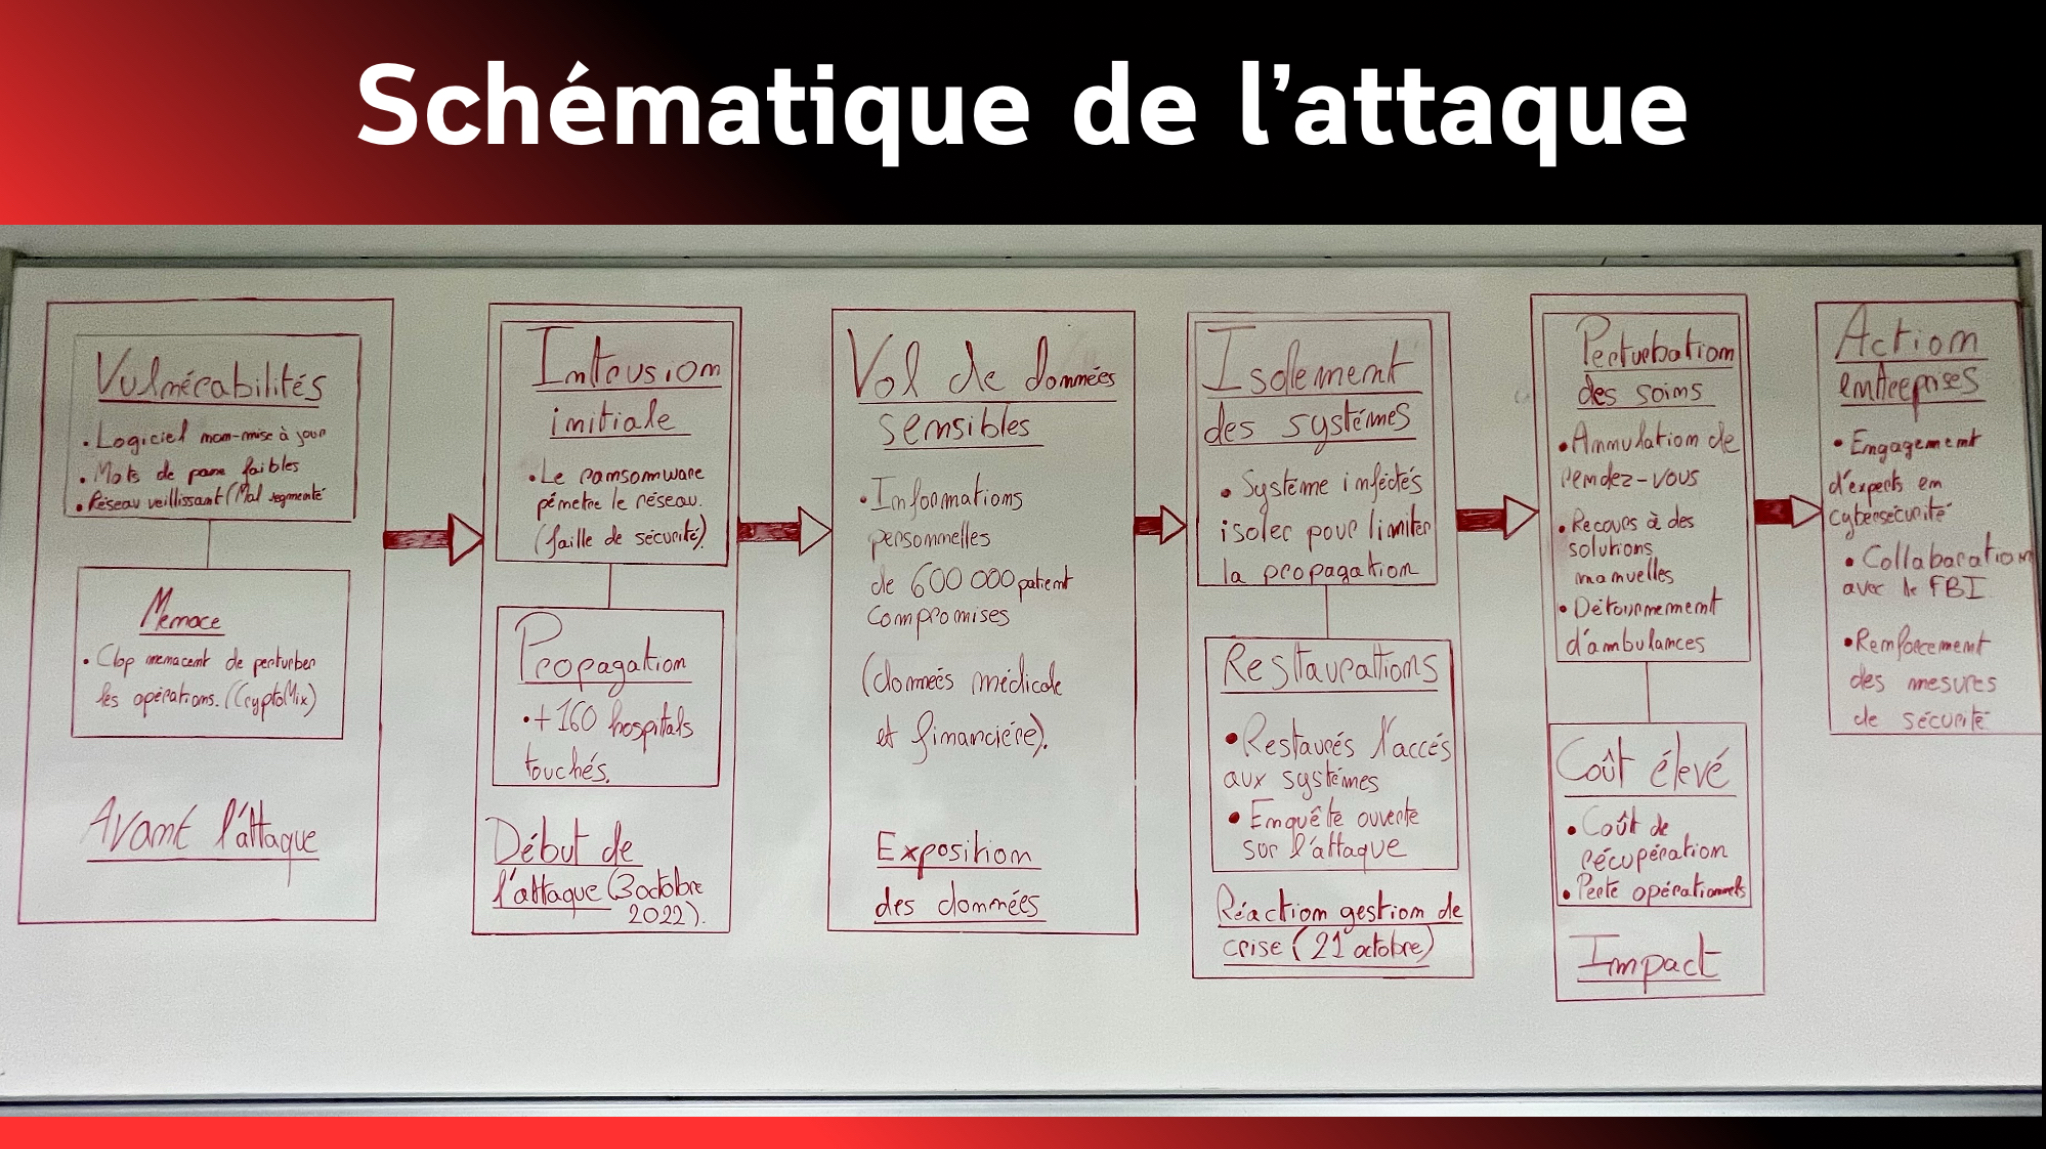 Schématique de l'attaque
Vulnérabilités
• Logiciel non-mise à jour
• Mots de passe faibles
• Réseau veillissant (Mal segmenté
Menace
• Clop menacent de perturber
les opérations. (CryptoMix)
Avant l'attaque
Intrusion
initiale
• Le ransomware
pémetre le réseau.
(faille de sécurité).
Propagation
• + 160 hospitals
touchés.
Début de
l'attaque (3 octobre
2022).
Vol de données
sensibles
• Informations
personnelles
de 600 000 patient
compromises
(données médicale
et financiére).
Exposition
des données
Isolement
des systémes
• Systéme inféctés
isoler pour limiter
la propagation
Restaurations
• Restaurés l'accés
aux systémes
• Enquête ouverte
sur l'attaque
Réaction gestion de
crise (21 octobre)
Perturbation
des soins
• Annulation de
rendez-vous
• Recours à des
solutions
manuelles
• Détournement
d'ambulances
Coût élevé
• Coût de
récupération
• Perte opérationnels
Impact
Action
entreprises
• Engagement
d'experts en
cybersécurité
• Collaboration
avec le FBI
• Renforcement
des mesures
de sécurité